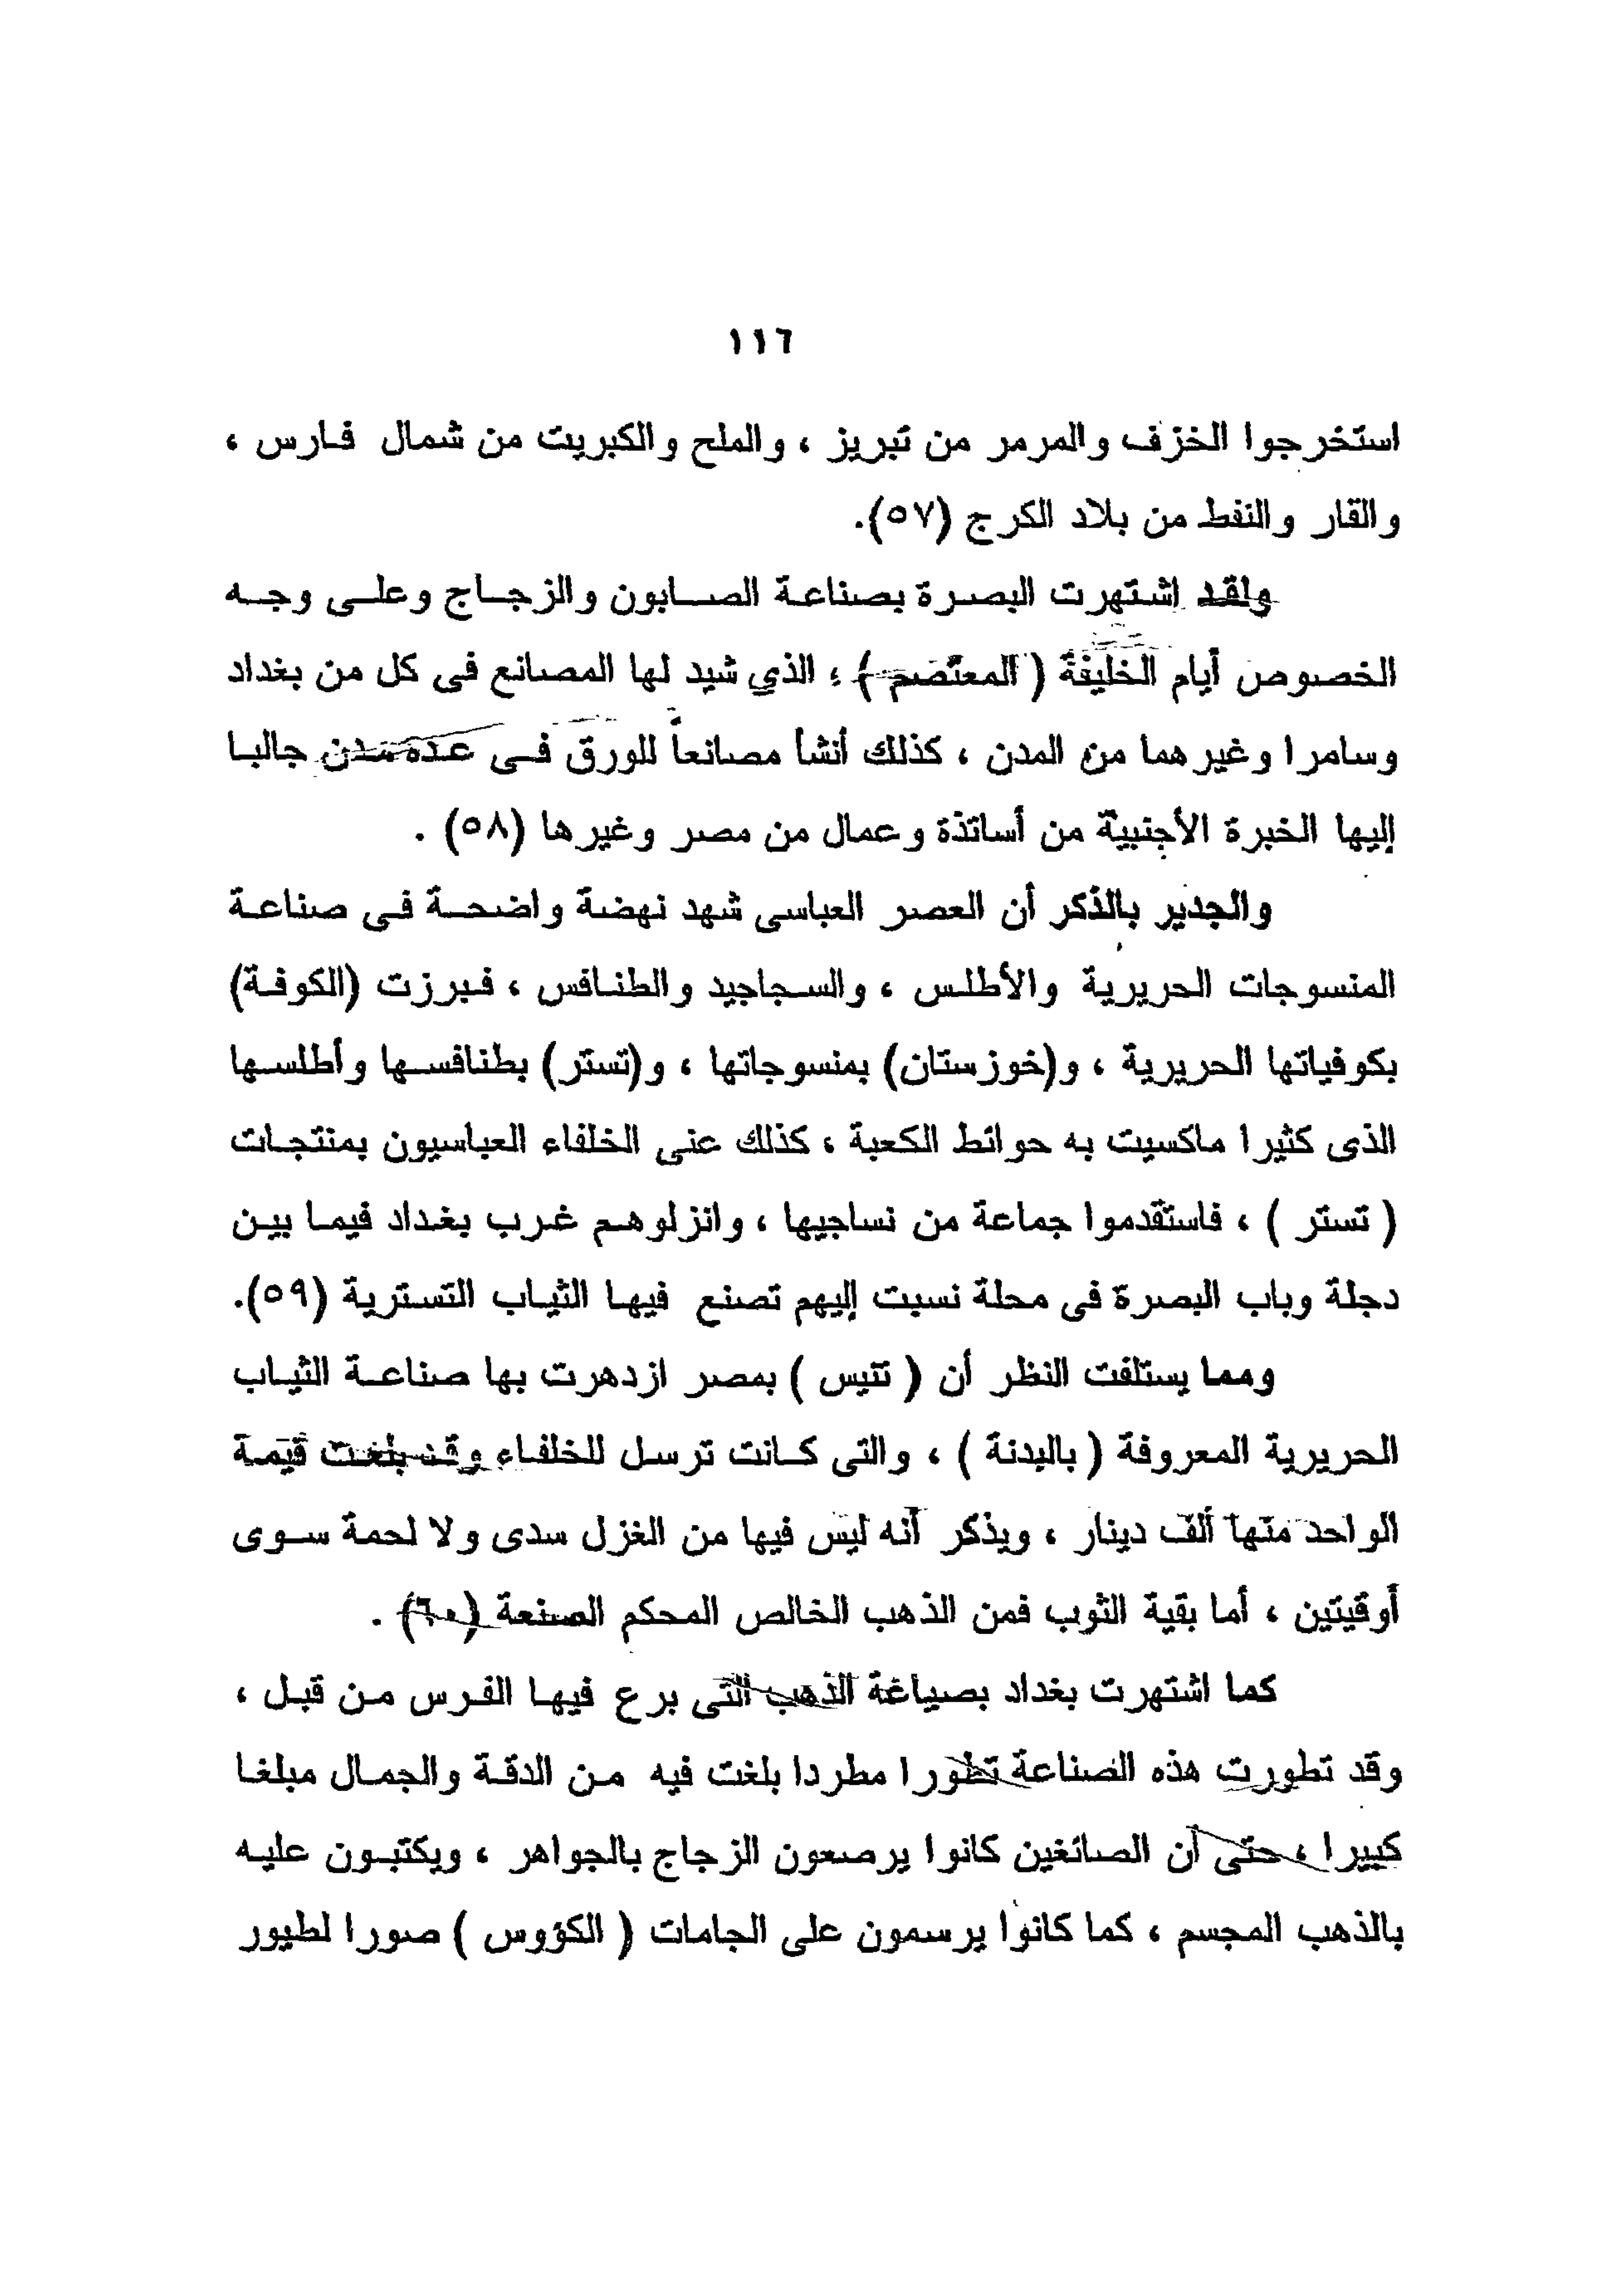 ١١٦
استخرجوا الخزف والمرمر من تبريز ، والملح والكبريت من شمال فارس ،
والقار والنفط من بلاد الكرج (٥٧).
ولقد اشتهرت البصرة بصناعة الصابون والزجاج وعلى وجه
الخصوص أيام الخليفة ( المعتصم ) ، الذي شيد لها المصانع فى كل من بغداد
وسامرا وغيرهما من المدن ، كذلك أنشأ مصانعاً للورق فى عده مدن جالبا
إليها الخبرة الأجنبية من أساتذة وعمال من مصر وغيرها (٥٨) .
والجدير بالذكر أن العصر العباسى شهد نهضة واضحة فى صناعة
المنسوجات الحريرية والأطلس ، والسجاجيد والطنافس ، فبرزت (الكوفة)
بكوفياتها الحريرية ، و(خوزستان) بمنسوجاتها ، و(تستر) بطنافسها وأطلسها
الذى كثيرا ماكسيت به حوائط الكعبة ، كذلك عنى الخلفاء العباسيون بمنتجات
( تستر ) ، فاستقدموا جماعة من نساجيها ، وانزلوهم غرب بغداد فيما بين
دجلة وباب البصرة فى محلة نسبت إليهم تصنع فيها الثياب التسترية (٥٩).
ومما يستلفت النظر أن ( تنيس ) بمصر ازدهرت بها صناعة الثياب
الحريرية المعروفة ( بالبدنة ) ، والتى كانت ترسل للخلفاء وقد بلغت قيمة
الواحد منها ألف دينار ، ويذكر أنه ليس فيها من الغزل سدى ولا لحمة سوى
أوقيتين ، أما بقية الثوب فمن الذهب الخالص المحكم الصنعة (٦٠) .
كما اشتهرت بغداد بصياغة الذهب التى برع فيها الفرس من قبل ،
وقد تطورت هذه الصناعة تطورا مطردا بلغت فيه من الدقة والجمال مبلغا
كبيرا ، حتى أن الصائغين كانوا يرصعون الزجاج بالجواهر ، ويكتبون عليه
بالذهب المجسم ، كما كانوا يرسمون على الجامات ( الكؤوس ) صورا لطيور